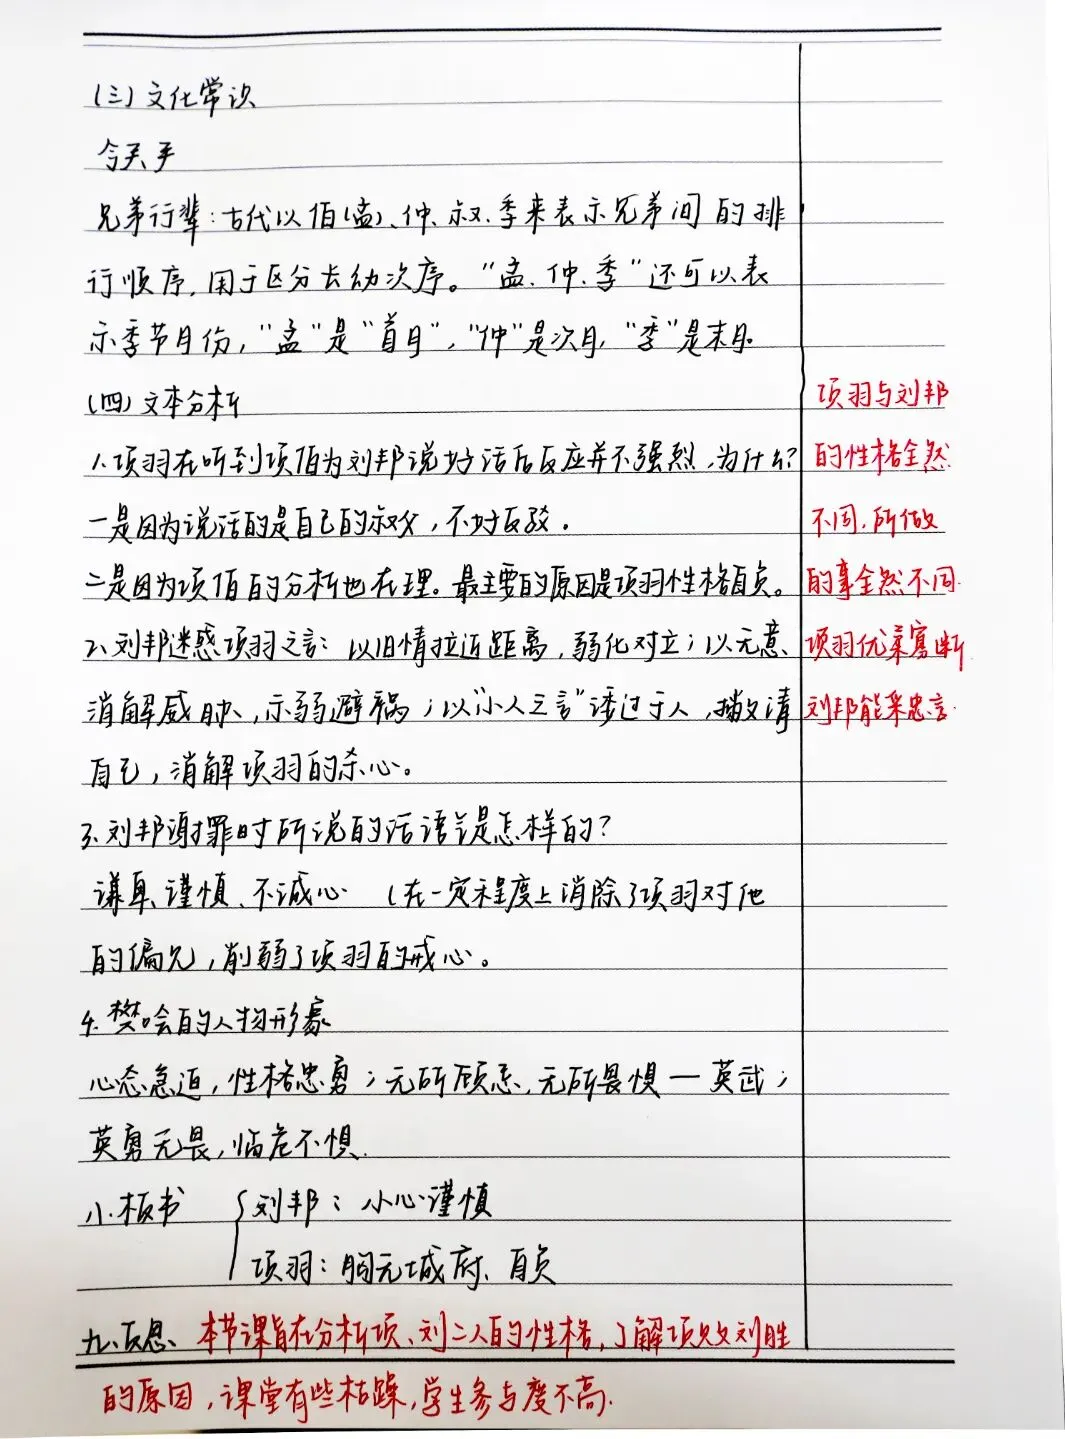 (三)文化常识
兄弟行辈:古代以伯(孟)、仲、叔、季来表示兄弟间的排
行顺序,用于区分长幼次序。“孟、仲、季”还可以表
示季节月份,“孟”是“首月”,“仲”是次月,“季”是末月。
(四)文本分析
1.项羽在听到项伯为刘邦说好话后反应并不强烈,为什么?
一是因为说话的是自己的叔父,不好反驳。
二是因为项伯的分析也在理。最主要的原因是项羽性格自负。
2.刘邦迷惑项羽之言:以旧情拉近距离,弱化对立;以无意、
消解威胁,示弱避祸;以“小人之言”诿过于人,撇清
自己,消解项羽的杀心。
3.刘邦谢罪时所说的话语是怎样的?
谦卑、谨慎、不诚心 (在一定程度上消除了项羽对他
的偏见,削弱了项羽的戒心。
4.樊哙的人物形象
心态急迫,性格忠勇;无所顾忌,无所畏惧—英武;
英勇无畏,临危不惧.
八.板书 刘邦:小心谨慎
项羽:胸无城府、自负
九、反思、本节课旨在分析项、刘二人的性格,了解项败刘胜
的原因,课堂有些枯躁,学生参与度不高.
项羽与刘邦
的性格全然
不同,所做
的事全然不同.
项羽优柔寡断
刘邦能采忠言.